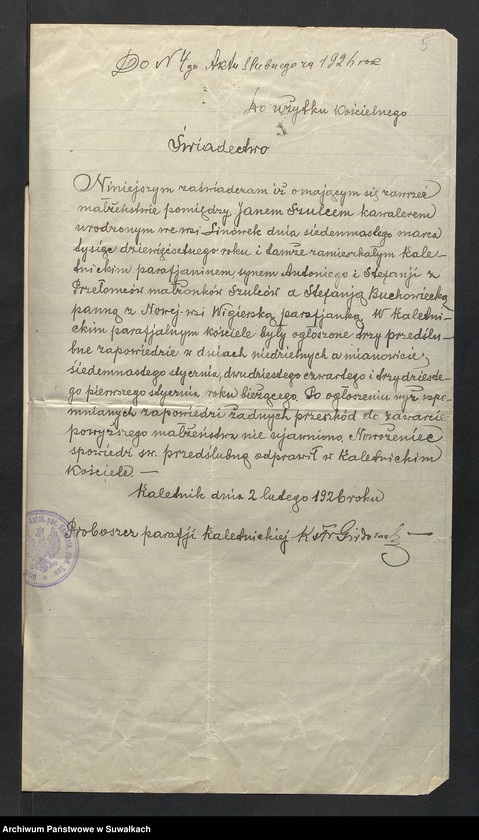 5
Do N 4go Aktu Ślubnego za 1926 rok
Do użytku kościelnego
Świadectwo
Niniejszym zaświadczam iż o mającym się zawrzeć
małżeństwie pomiędzy Janem Szulcem kawalerem
urodzonym we wsi Linówek dnia siedemnastego marca
tysiąc dziewięćsetnego roku i tamże zamieszkałym Kale-
tnickim parafjaninem, synem Antoniego i Stefanji z
Przełomców małżonków Szulców a Stefanją Buchowiecką
panną z Nowej-wsi Wigierską parafjanką. W Kaletni-
ckim parafjalnym kościele były ogłoszone trzy przedślu-
bne zapowiedzie w dniach niedzielnych a mianowicie,
siedemnastego stycznia, dwudziestego czwartego i trzydzieste-
go pierwszego stycznia roku bieżącego. Po ogłoszeniu wyż wspo-
mnianych zapowiedzi żadnych przeszkód do zawarcia
powyższego małżeństwa nie ujawniono. Nowożeniec
spowiedź św. przedślubną odprawił w Kaletnickim
Kościele. —
Kaletnik dnia 2 lutego 1926 roku
Proboszcz parafji Kaletnickiej
Archiwum Państwowe w Suwałkach